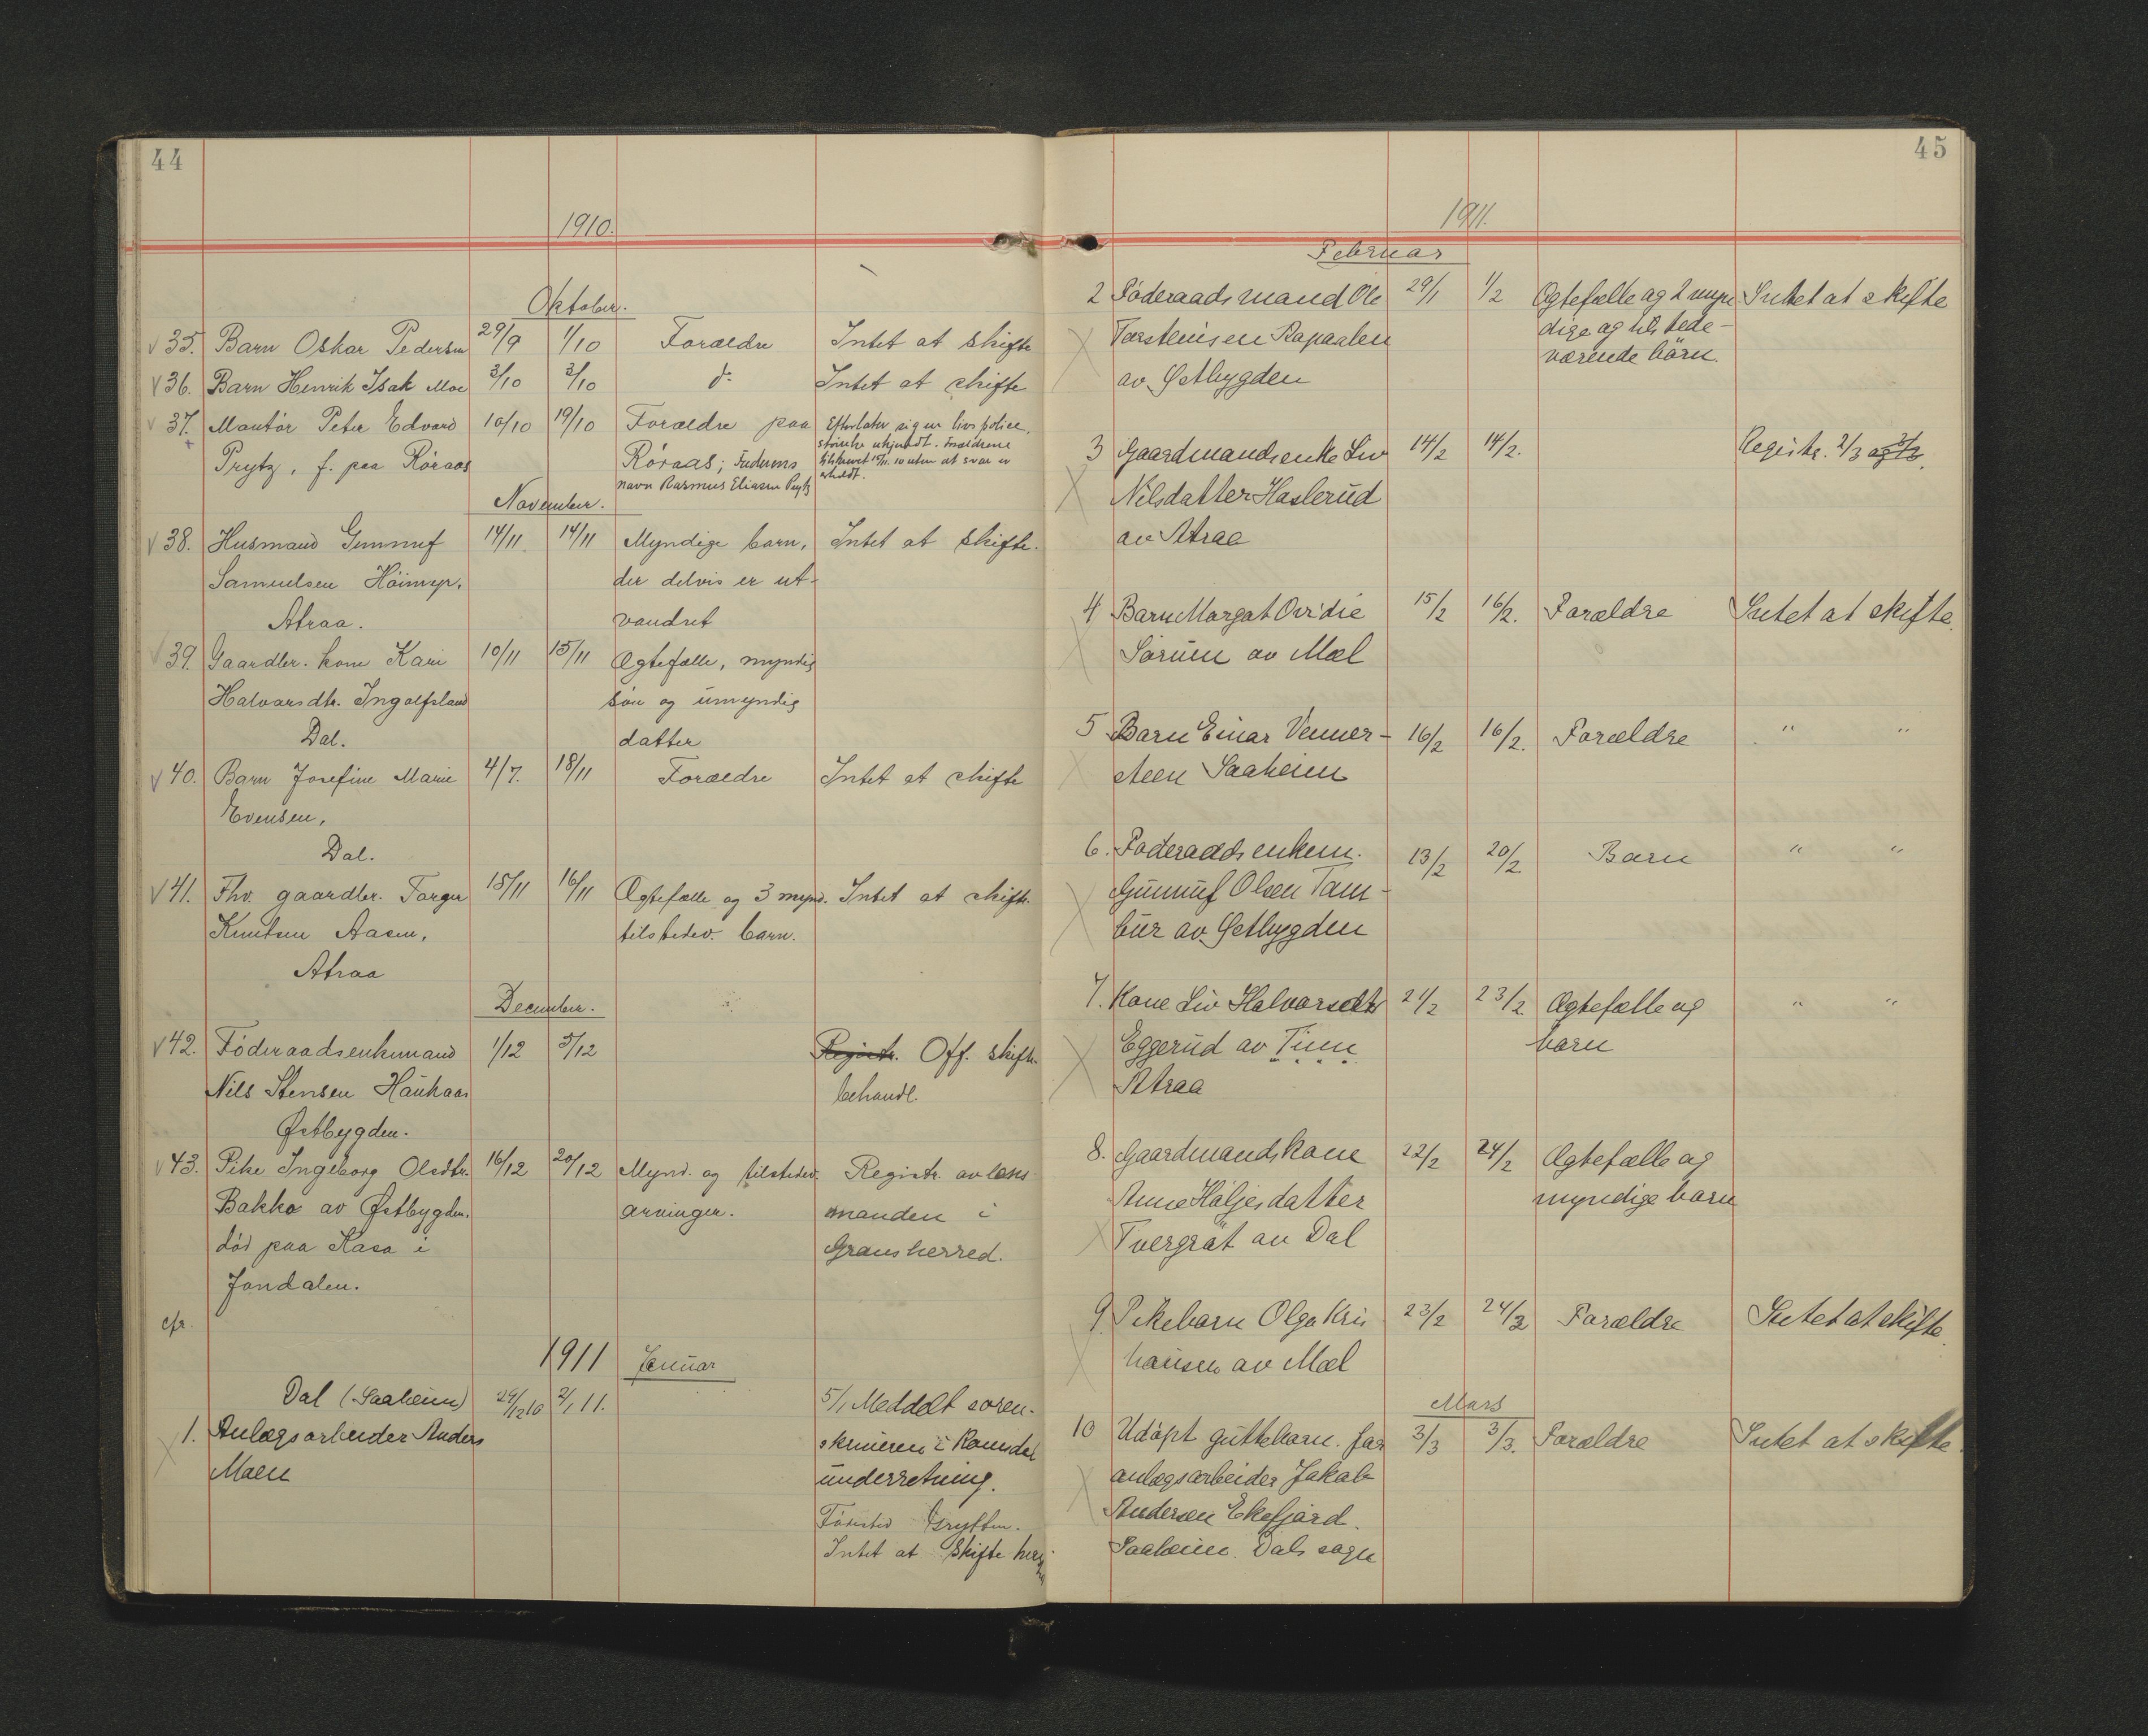 44
1910.
Oktober.
35. Barn Oskar Pedersen 29/9 1/10 Forældre Intet at skifte
36. Barn Henrik Isak Moe 3/10 3/10 do Intet at skifte
37. Montør Peter Edvard 10/10 19/10 Forældre paa Efterlater sig en livspolice,
Prytz, f. paa Röraas Röraas; Faderens størrelse ukjendt. Forældrene
navn Rasmus Eliasen Prytz tilskrevet 15/11. 10 uten at svar er
erholdt.
November.
38. Husmand Gunnuf 14/11 14/11 Myndige barn, Intet at skifte.
Samuelsen Höimyr, der delvis er ut-
Atraa. vandret
39. Gaardbr. kone Kari 10/11 15/11 Ægtefælle, myndig
Halvorsdtr. Ingolfsland sön og umyndig
Dal. datter
40. Barn Josefine Marie 4/7. 18/11 Forældre Intet at skifte
Evensen,
Dal.
41. Fhv. gaardbr. Torger 15/11 16/11 Ægtefælle og 3 mynd. Intet at skifte.
Knutsen Aasen, tilstedev. barn.
Atraa
December.
42. Föderaadsenkemand 1/12 5/12 Registr. Off. skifte-
Nils Stensen Haukaas behandl.
Østbygden.
43. Pike Ingeborg Olsdtr. 16/12 20/12 Mynd. og tilstedev. Registr. av lens-
Bakka av Østbygden. arvinger. manden i
död paa Kasa i Gransherred.
Jondalen.
cfr.
1911 Januar
Dal (Saaheim) 29/12 10 2/1 11. 5/1 Meddelt soren-
1. Anlægsarbeider Anders skriveren i Romsdal
Moen underretning.
Födested Grytten.
Intet at skifte her
45
1911.
Februar
2 Föderaadsmand Ole 29/1 1/2 Ægtefælle og 2 myn- Intet at skifte
Torsteinsen Rapaalen dige og tilstede-
av Østbygden værende börn.
3 Gaardmandsenke Liv 14/2 14/2. Registr. 2/3
Nilsdatter Haslerud
av Atraa
4 Barn Margot Ovidie 15/2 16/2. Forældre Intet at skifte.
Sörum av Mæl
5 Barn Einar Venner- 16/2 16/2. Forældre " "
steen Saaheim
6. Föderaadsenkem. 13/2 20/2. Barn " "
Gunnuf Olsen Tam-
bur av Østbygden
7. Kone Liv Halvorsdtr 21/2 23/2. Ægtefælle og " "
Eggerud av Tinn barn
Atraa
8. Gaardmandskone 22/2 24/2 Ægtefælle og
Anne Håljesdatter myndige barn
Tvergrät av Dal
9. Pikebarn Olga Kris 23/2 24/2 Forældre Intet at skifte
hansen av Mæl
Mars
10 Udöpt guttebarn. far 3/3 3/3. Forældre Intet at skifte.
anlægsarbeider Jakob
Andersen Ekefjärd.
Saaheim. Dals sogn